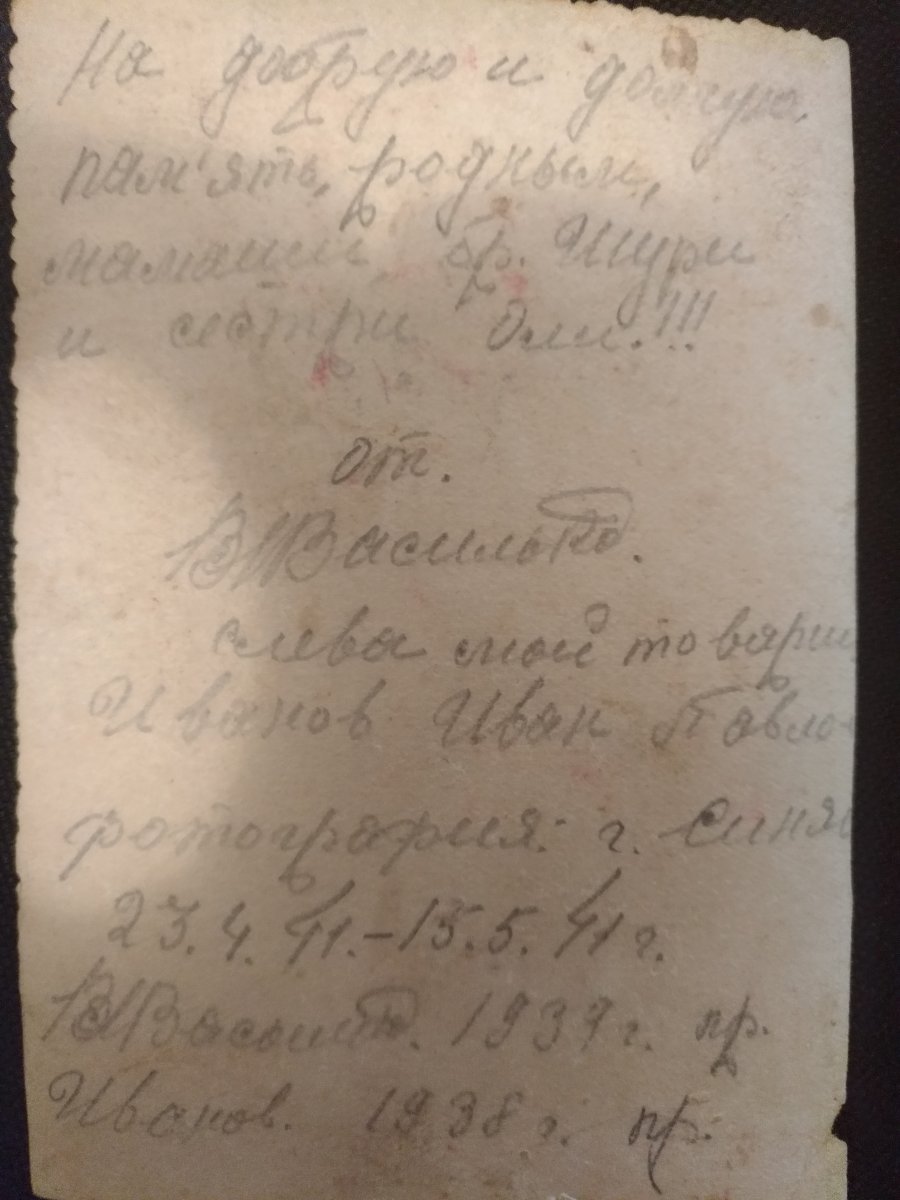 На добрую и долгую
пам'ять, родным,
мамаши, бр. Шури
и сестри Оли.!!!
от.
слева мой товарищ
Иванов Иван Павло
фотография: г. Синя
23.4.41.-15.5.41 г.
1939 г. пр.
Иванов. 1938 г. пр.